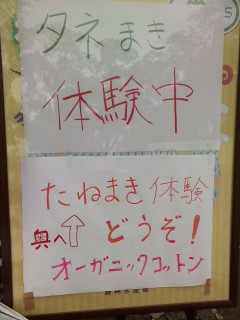 5
タネまき
体験中
たねまき体験
奥へ⇧どうぞ!
オーガニックコットン